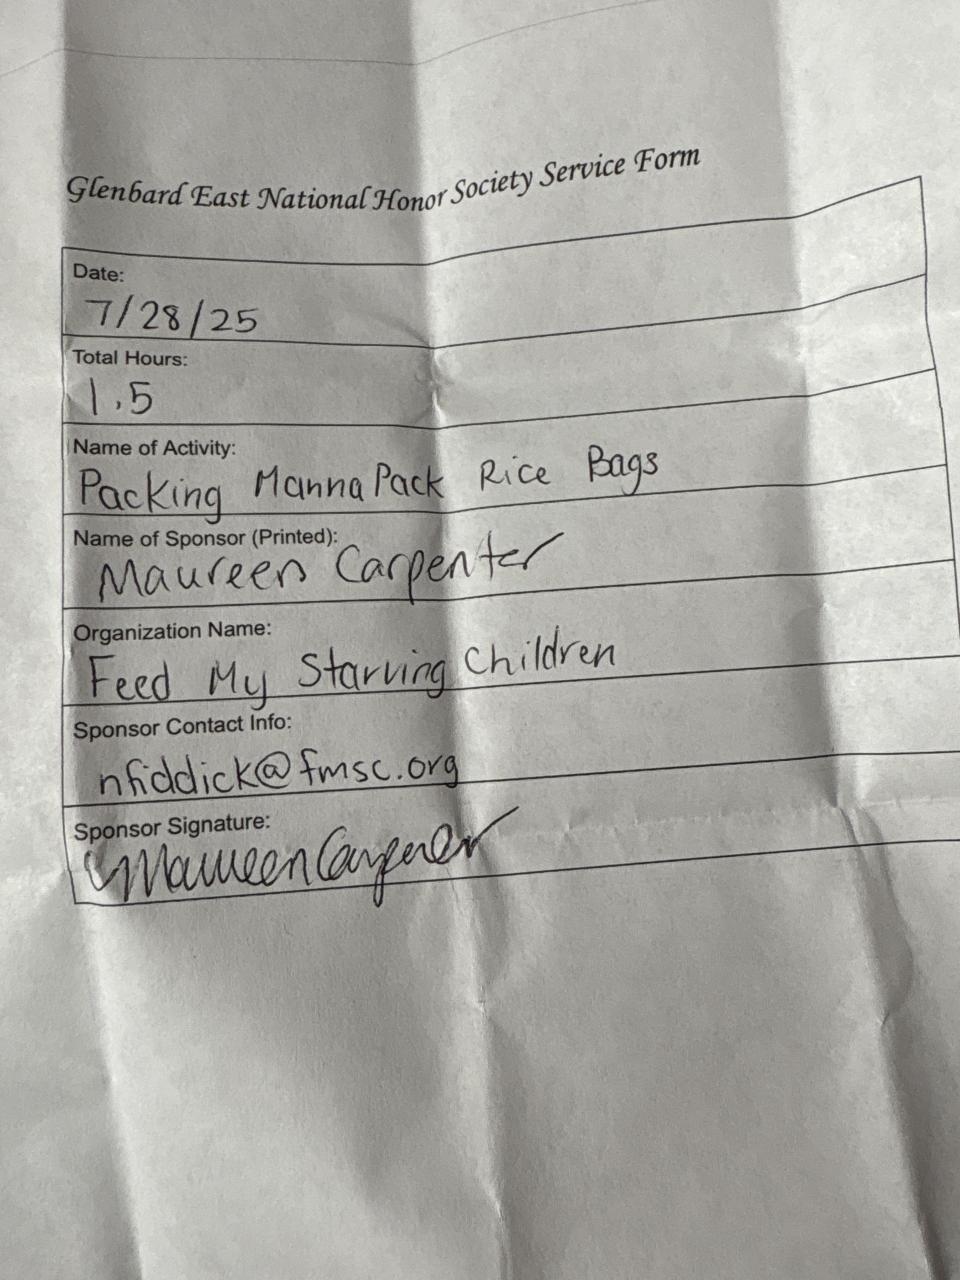 Glenbard East National Honor Society Service Form
Date:
7/28/25
Total Hours:
1.5
Name of Activity:
Packing MannaPack Rice Bags
Name of Sponsor (Printed):
Maureen Carpenter
Organization Name:
Feed My Starving Children
Sponsor Contact Info:
nfiddick@fmsc.org
Sponsor Signature:
Maureen Carpenter